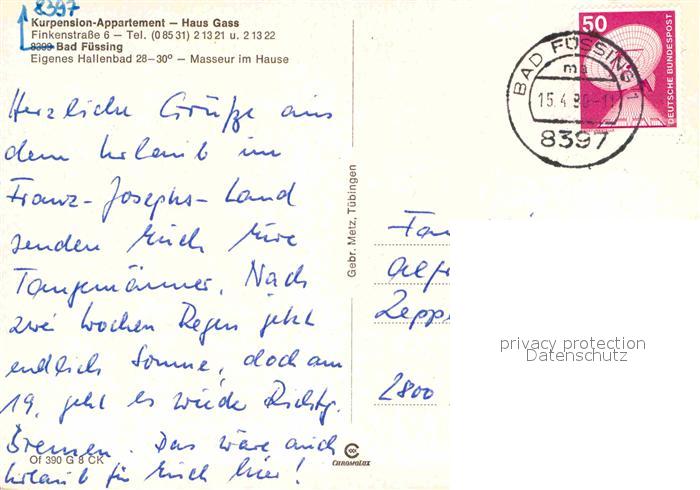 8397
Kurpension-Appartement — Haus Gass
Finkenstraße 6 — Tel. (0 85 31) 2 13 21 u. 2 13 22
8399 Bad Füssing
Eigenes Hallenbad 28-30° — Masseur im Hause
Herzliche Grüße aus
dem Urlaub im
Franz-Josephs-Land
senden Euch Eure
Tangemänner. Nach
zwei Wochen Regen jetzt
endlich Sonne, doch am
19. geht es wieder Richtg.
Bremen. Das wäre auch
Urlaub für Euch hier!
Of 390 G 8 CK
CHROMOLUX
Gebr. Metz, Tübingen
50
DEUTSCHE BUNDESPOST
BAD FÜSSING 1
ma
15.4.80-11
8397
Fam
Alfr
Zepp
2800
privacy protection
Datenschutz